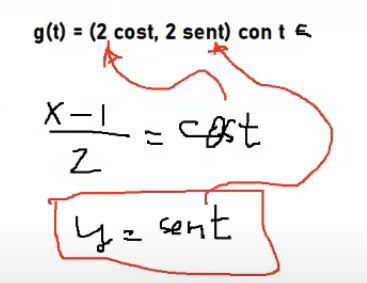 g(t) = (2 cost, 2 sent) con t ∈
x-1
2
= cost
y = sent